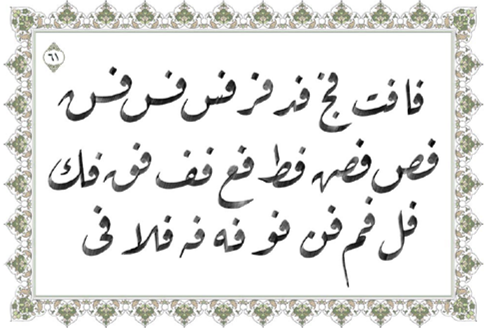 ٦١
فا فت فخ فد فر فس فس فس
فص فصه فط فع فف فق فک
فل فم فن فو فه فه فلا فی